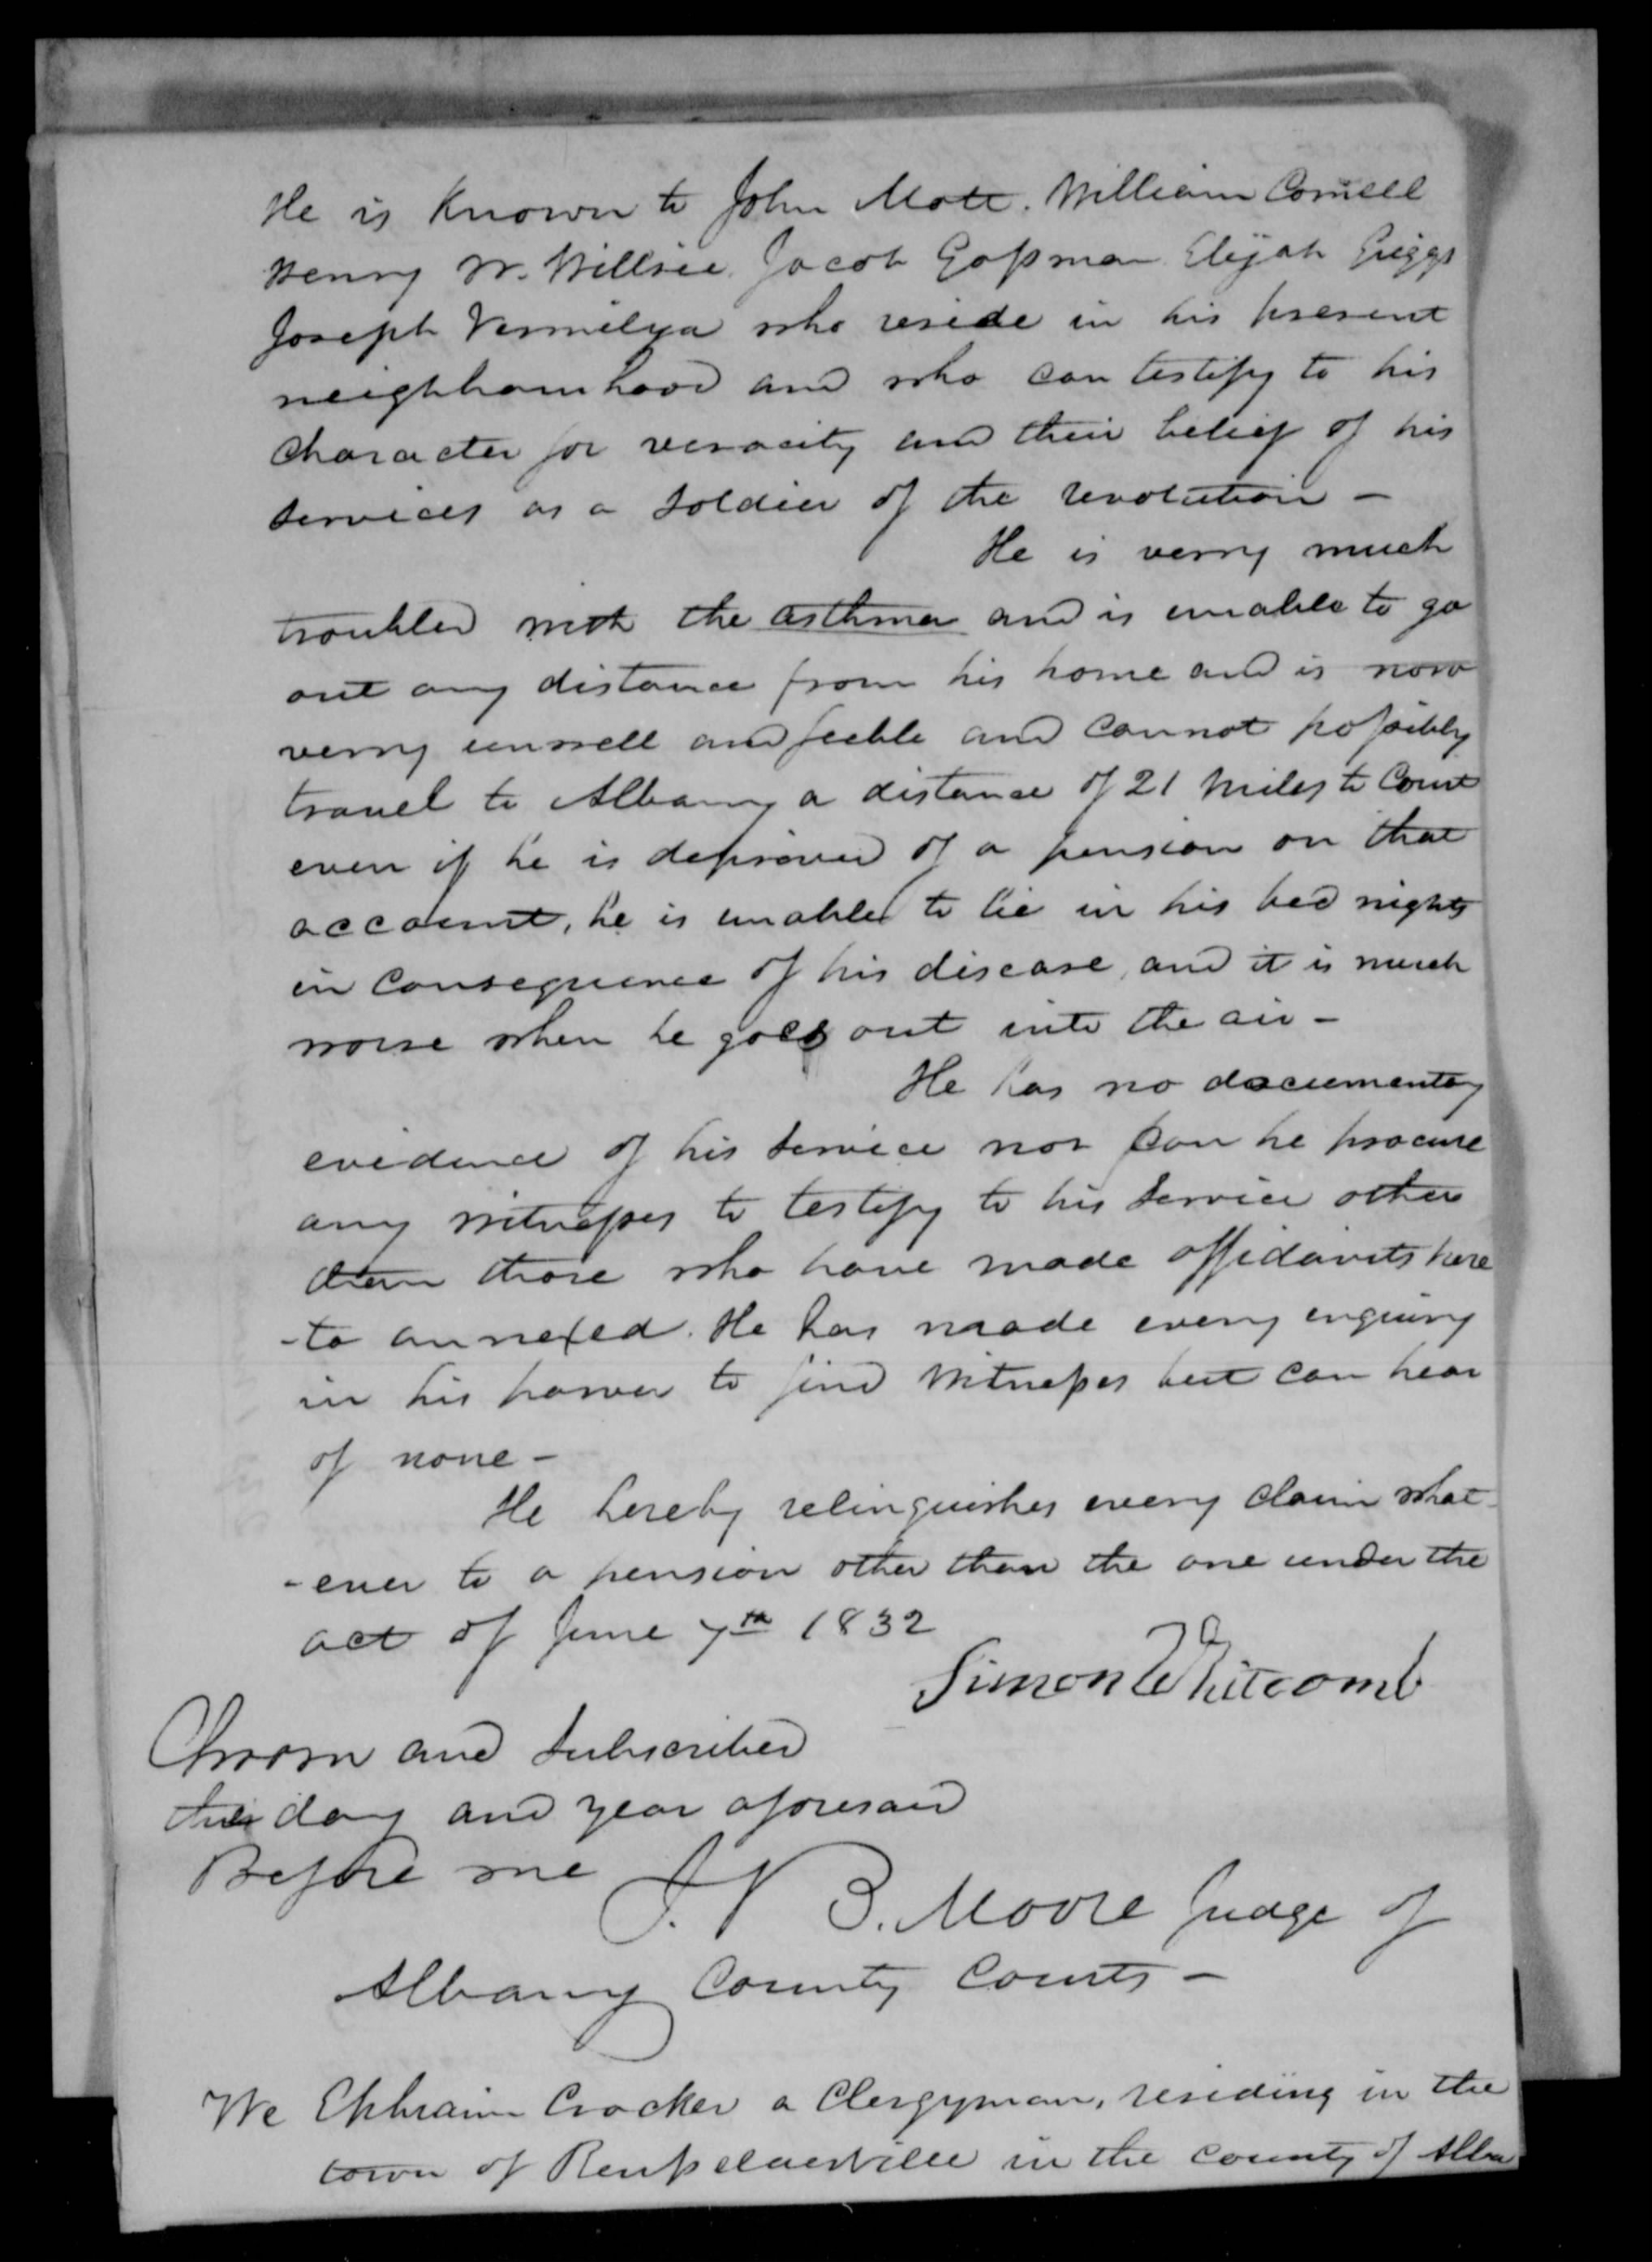 He is known to John Mott. William Cornell
Henry W. Willsie. Jacob Gossman Elijah Griggs
Joseph Vermilya who reside in his present
neighbourhood and who can testify to his
character for veracity and their belief of his
services as a soldier of the revolution -
He is verry much
troubled with the asthma and is unable to go
out any distance from his home and is now
verry unwell and feeble and cannot possibly
travel to Albany a distance of 21 miles to Court
even if he is deprived of a pension on that
account, he is unable to lie in his bed nights
in consequence of his disease, and it is much
worse when he goes out into the air -
He has no documentary
evidence of his service nor can he procure
any witnesses to testify to his service other
than those who have made affidavits here
-to annexed. He has made every enquiry
in his power to find witnesses but can hear
of none -
He hereby relinquishes every claim what-
-ever to a pension other than the one under the
act of June 7th 1832
Simon Whitcomb
Sworn and subscribed
the day and year aforesaid
Before me J. V B. Moore Judge of
Albany County Courts -
We Ephraim Crocker a Clergyman, residing in the
town of Rensselaerville in the county of Alba